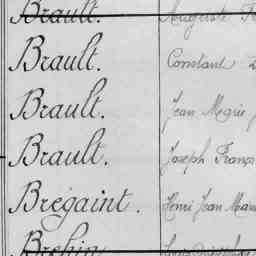 Brault. Auguste
Brault. Constant
Brault. Jean Marie
Brault. Joseph Franç
Brégaint. Henri Jean Marie
Brehin